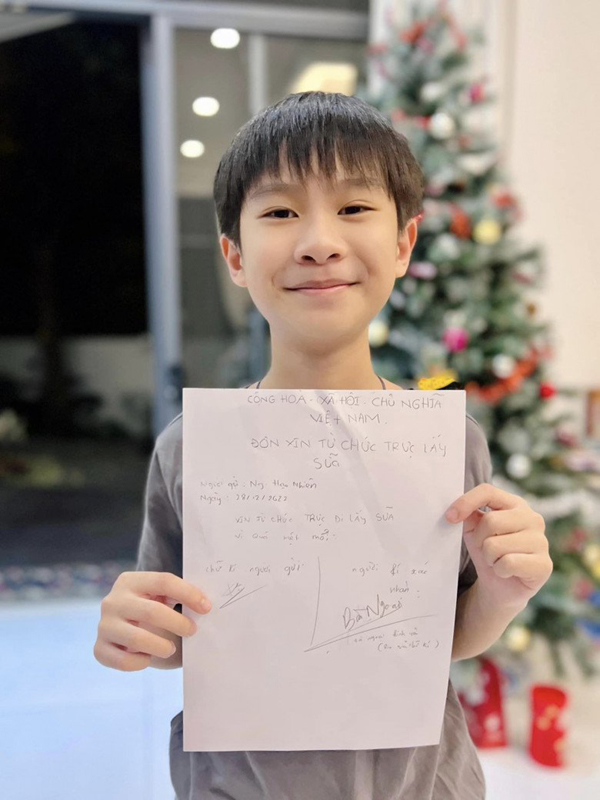 CỘNG HOÀ - XÃ HỘI - CHỦ NGHĨA
VIỆT NAM.
ĐƠN XIN TỪ CHỨC TRỰC LẤY
SỮA
Người gửi : Ng
Ngày :
XIN TỪ CHỨC TRỰC ĐI LẤY SỮA
vì quá mệt mỏi.
chữ kí người gửi
người kí xác
nhận:
Bà Ngoại